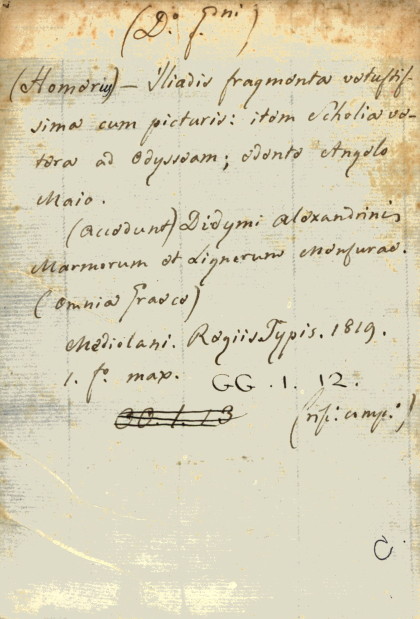 (Homerus) — Iliadis fragmenta vetustis-
sima cum picturis: item Scholia ve-
tera ad Odysseam; edente Angelo
Maio.
(accedunt) Didymi Alexandrini
Marmorum et Lignorum Mensurae.
(omnia Graece)
Mediolani. Regiis Typis. 1819.
1. fo. max. GG. 1. 12.